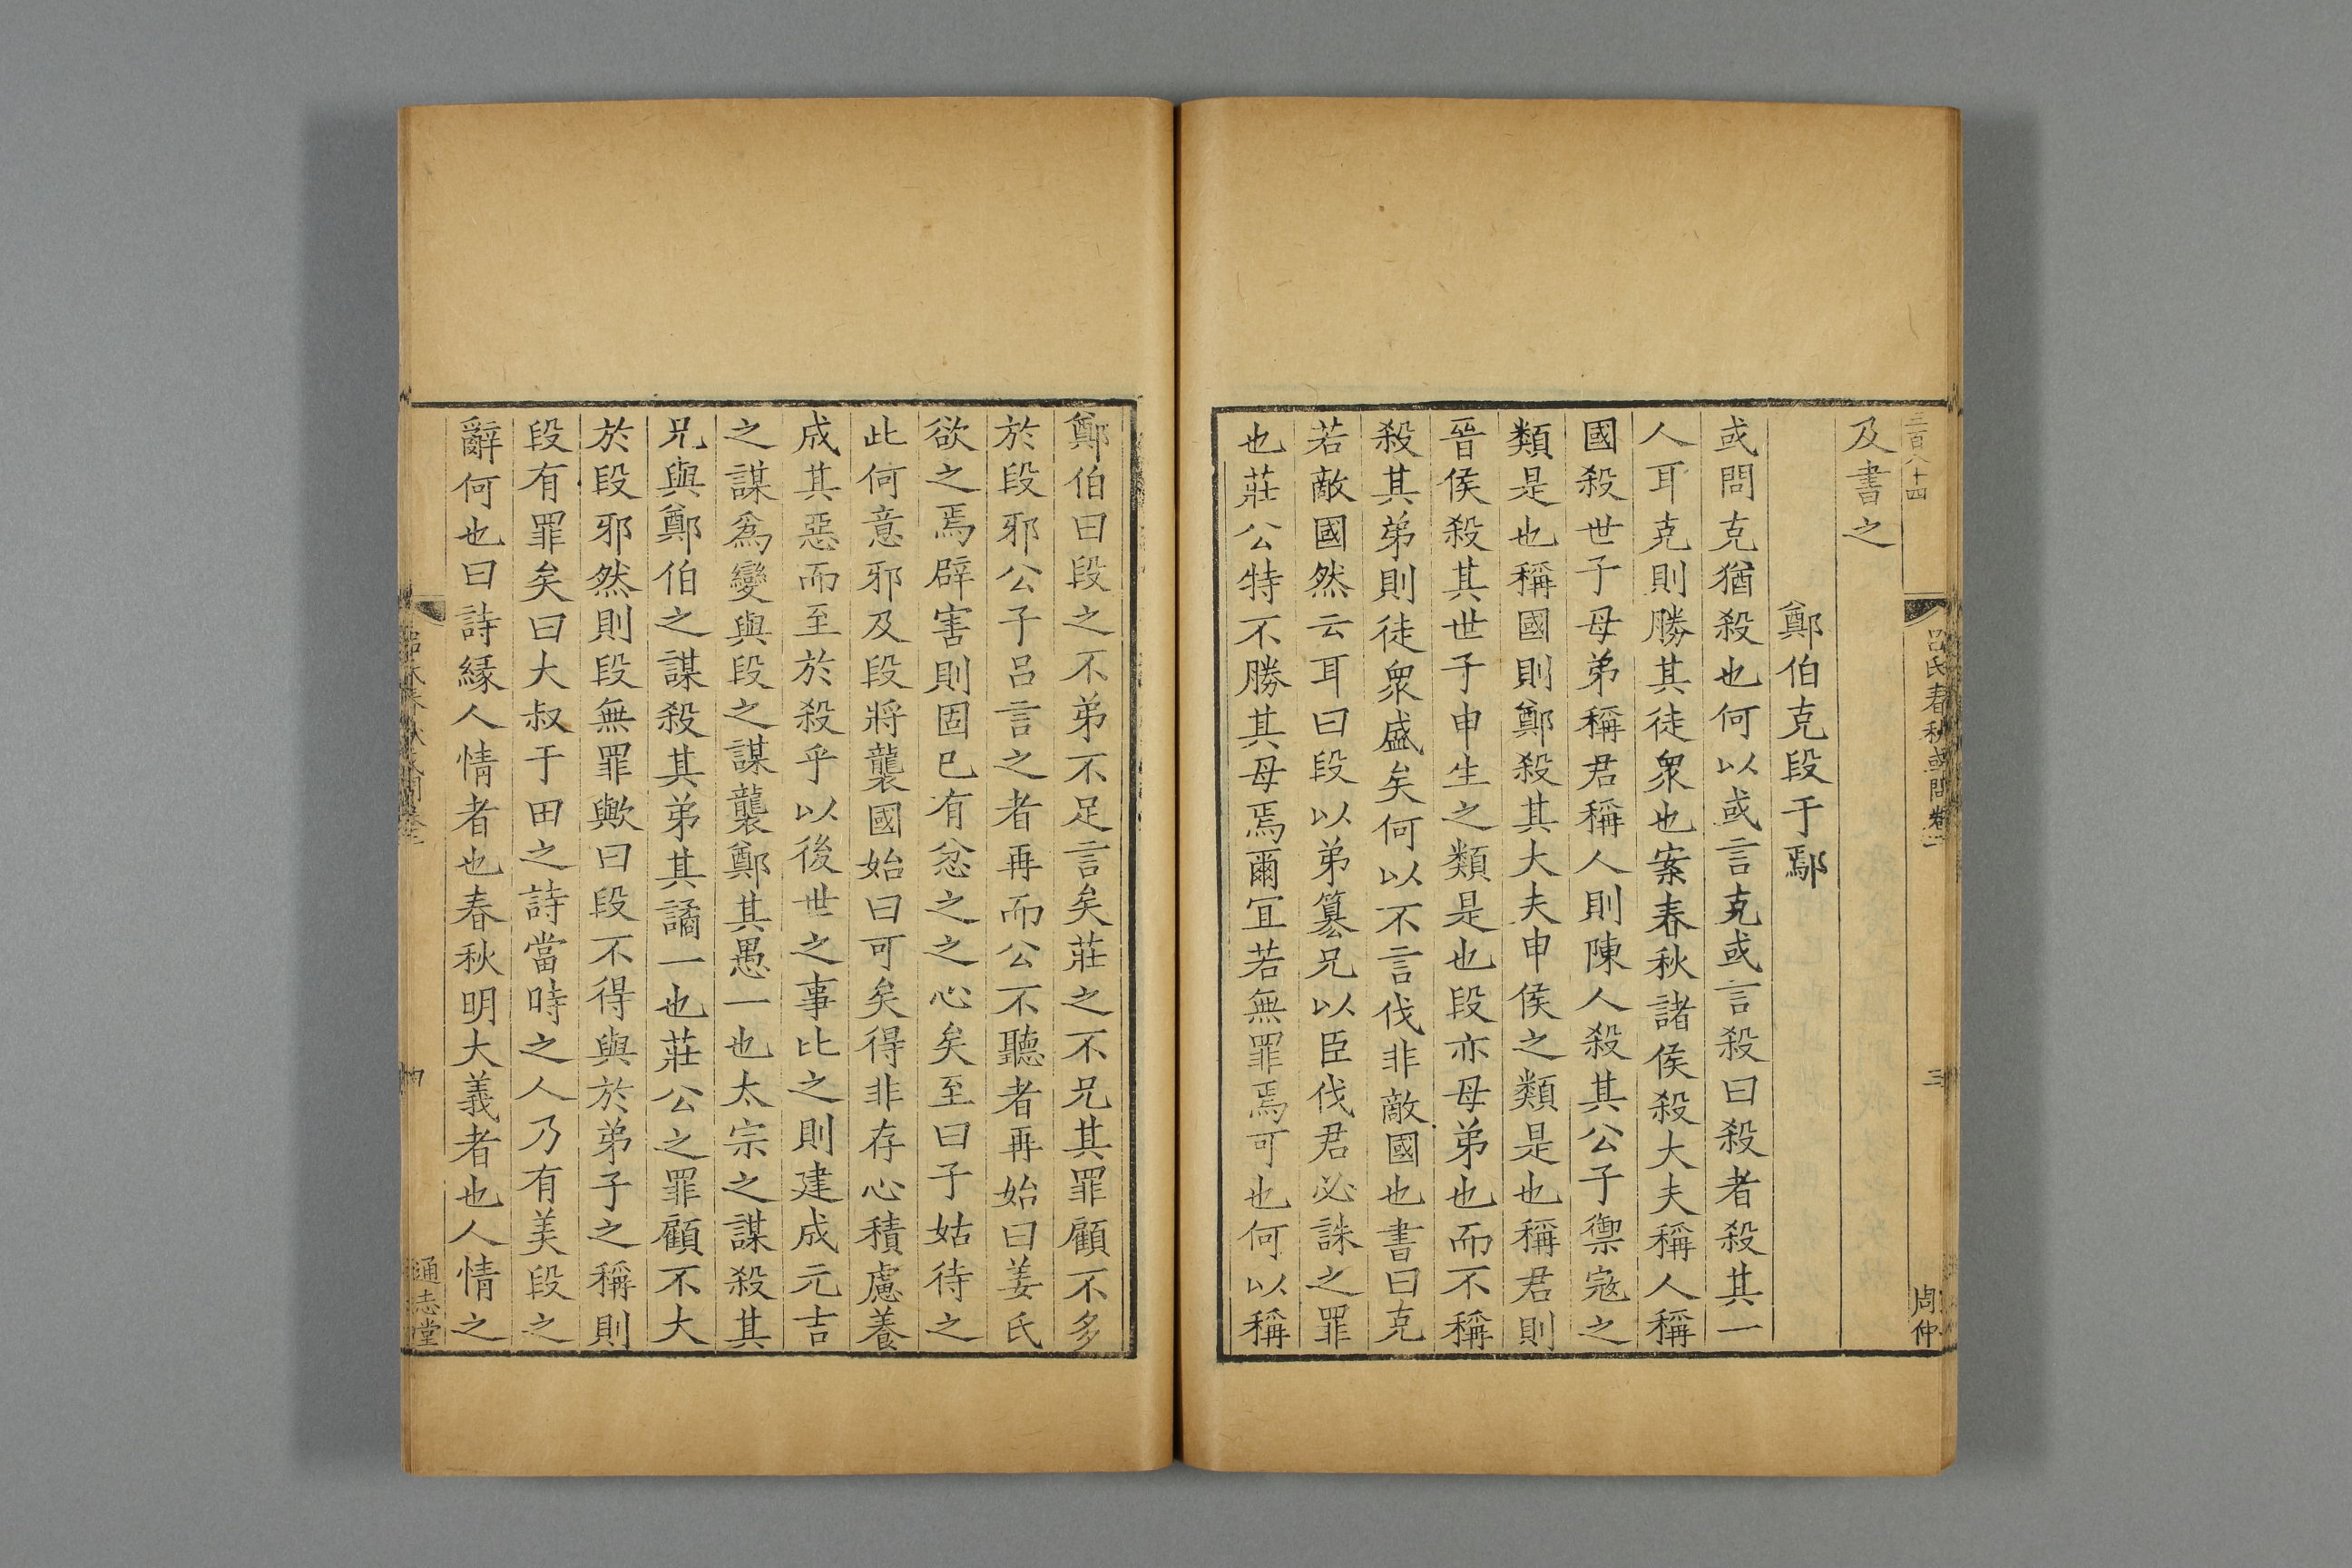 三百八十四
呂氏春秋或問卷二
三
周仲
及書之
鄭伯克段于鄢
或問克猶殺也何以或言克或言殺曰殺者殺其一
人耳克則勝其徒衆也案春秋諸侯殺大夫稱人稱
國殺世子母弟稱君稱人則陳人殺其公子禦宼之
類是也稱國則鄭殺其大夫申侯之類是也稱君則
晉侯殺其世子申生之類是也段亦母弟也而不稱
殺其弟則徒衆盛矣何以不言伐非敵國也書曰克
若敵國然云耳曰段以弟簒兄以臣伐君必誅之罪
也莊公特不勝其母焉爾宜若無罪焉可也何以稱
鄭伯曰段之不弟不足言矣莊之不兄其罪顧不多
於段邪公子呂言之者再而公不聽者再始曰姜氏
欲之焉辟害則固已有忿之之心矣至曰子姑待之
此何意邪及段將襲國始曰可矣得非存心積慮養
成其惡而至於殺乎以後世之事比之則建成元吉
之謀爲變與段之謀襲鄭其愚一也太宗之謀殺其
兄與鄭伯之謀殺其弟其譎一也莊公之罪顧不大
於段邪然則段無罪歟曰段不得與於弟子之稱則
段有罪矣曰大叔于田之詩當時之人乃有美段之
辭何也曰詩緣人情者也春秋明大義者也人情之
通志堂